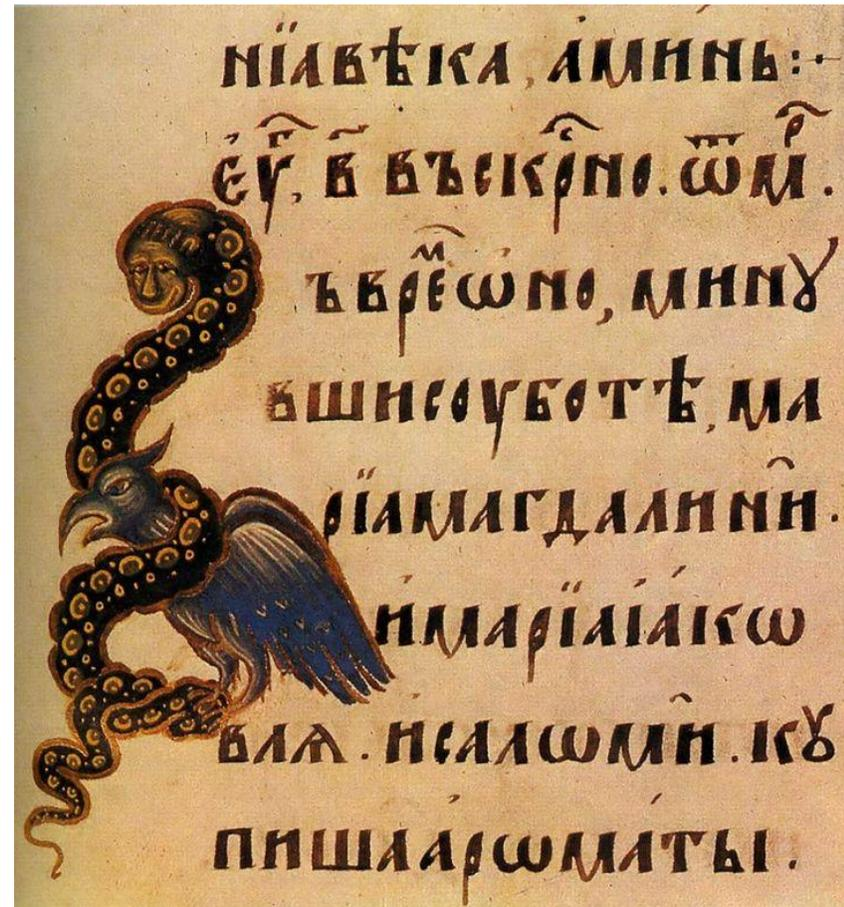 нїѧвѣка, а́минь:·
є҆ѵ҃г, в҃ въскр҇но. ѿмр҃.
ъврем҃ѡно, минꙋ
вшисоуботѣ, ма
рїамагдалинѝ.
и҆марїаіа́кѡ
влѧ. исалѡмѝ. кꙋ
пишаа́рѡма́ты.